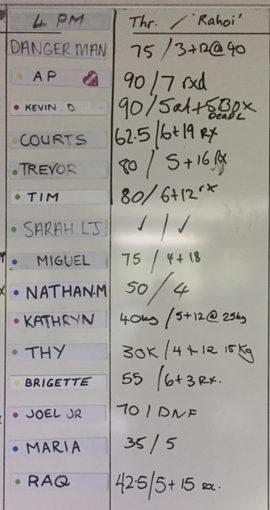 4 PM Thr. / 'Rahoi'
DANGERMAN 75 / 3+12@40
AP 90 / 7 rxd
KEVIN. D 90/5
COURTS 62.5/6+19 RX
TREVOR 80 / 5+16 RX
TIM 80/6+12 rx
SARAH LJ ✓ / ✓
MIGUEL 75 / 4+18
NATHAN.M 50 / 4
KATHRYN 40kg / 5+12@25kg
THY 30K / 4+12 15Kg
BRIGETTE 55 / 6+3 RX.
JOEL JR 70 / DNF
MARIA 35 / 5
RAQ 42.5/5+15 rx.